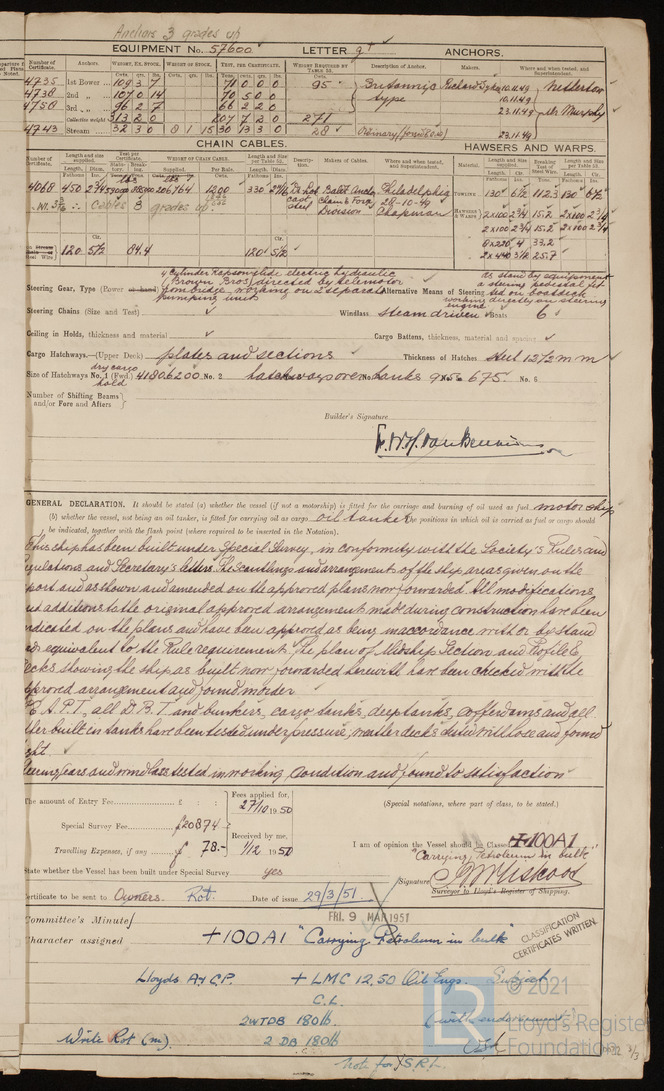 Anchors 3 grades up
EQUIPMENT No. 57600 LETTER g† ANCHORS.
Number of Certificate. Anchors. WEIGHT, EX. STOCK. WEIGHT OF STOCK. TEST, PER CERTIFICATE. WEIGHT REQUIRED BY TABLE 53. Description of Anchor. Makers. Where and when tested, and Superintendent.
4735 1st Bower 109 3 7 71 0 0 0 95 Britannic Richard Sykes 10.11.49 Netherton
4738 2nd 107 0 14 70 5 0 0 type 10.11.49
4750 3rd 96 2 7 66 2 2 0 23.11.49
Collective weight 313 2 0 207 7 2 0 271
4743 Stream 32 3 0 8 1 15 30 13 3 0 28 Ordinary 23.11.49
CHAIN CABLES. HAWSERS AND WARPS.
Number of Certificate. Length and size supplied. Test per Certificate. WEIGHT OF CHAIN CABLE. Length and size per Table 53. Description. Makers of Cables. Where and when tested, and Superintendent. Material. Length and size supplied. Breaking Test of Steel Wire. Length and size per Table 53.
4068 450 206764 1200 330 cast steel Chain & Forg. Division Philadelphia 28-10-49 Chapman TOWLING 130 6½ 112.3 130 6½
cables 3 grades up HAWSERS & WARPS 2x100 2¾ 15.2 2x100 2¾
2x100 2¾ 15.2 2x100 2¾
8x220 4 33.2
120 5½ 84.4 120 5½ 2x440 3½ 25.7
4 cylinder Rapson slide electric hydraulic
Brown Bros) directed by telemotor as stand by equipment
Steering Gear, Type (Power or hand) from bridge, working on 2 separate pumping units Alternative Means of Steering a steering pedestal fitted on boatdeck working directly on steering engine
Steering Chains (Size and Test) Windlass steam driven Boats 6
Ceiling in Holds, thickness and material Cargo Battens, thickness, material and spacing
Cargo Hatchways.—(Upper Deck) plates and sections Thickness of Hatches steel 12½ mm
Size of Hatchways No. 1 (Fwd.) dry cargo hold 4180 6200 No. 2 hatchways over tanks 675. No. 6
Number of Shifting Beams and/or Fore and Afters
Builder's Signature.
GENERAL DECLARATION. It should be stated (a) whether the vessel (if not a motorship) is fitted for the carriage and burning of oil used as fuel. motor ship
(b) whether the vessel, not being an oil tanker, is fitted for carrying oil as cargo oil tanker the positions in which oil is carried as fuel or cargo should
be indicated, together with the flash point (where required to be inserted in the Notation).
This ship has been built under Special Survey, in conformity with the Society's Rules and
Regulations and Secretary's letters. The scantlings and arrangement of the ship are as given on the
report and as shown and amended on the approved plans now forwarded. All modifications
and additions to the original approved arrangement made during construction have been
indicated on the plans and have been approved as being in accordance with or by stand
equivalent to the Rule requirement. The plan of Midship Section and Profile &
decks showing the ship as built now forwarded herewith have been checked with the
approved arrangement and found in order
A.P.T., all D.B.T. and bunkers, cargo tanks, deep tanks, cofferdams and all
other built in tanks have been tested under pressure, weather decks tested with hose and found
tight
Steering gears and windlass tested in working condition and found to satisfaction
The amount of Entry Fee £ : : Fees applied for, 27/10 1950 (Special notations, where part of class, to be stated.)
Special Survey Fee £20874 Received by me, 1/12 1950 I am of opinion the Vessel should be Classed +100A1
Travelling Expenses, if any £ 78.- "Carrying Petroleum in bulk"
State whether the Vessel has been built under Special Survey yes
Signature
Surveyor to Lloyd's Register of Shipping.
Certificate to be sent to Owners. Rot. Date of issue 29/3/51
FRI. 9 MAR 1951
Committee's Minute
Character assigned +100A1 "Carrying Petroleum in bulk"
CLASSIFICATION CERTIFICATES WRITTEN.
Lloyds A & C.P. + LMC 12.50 Oil Engs. Subject
C.L.
2 WTDB 180lb (with endorsement)
Write Rot (m) 2 DB 180lb
Note for S.R.L.
© 2021
Lloyd's Register
Foundation